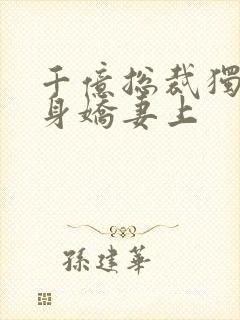 千億总裁獨
身嬌妻上
孫建華